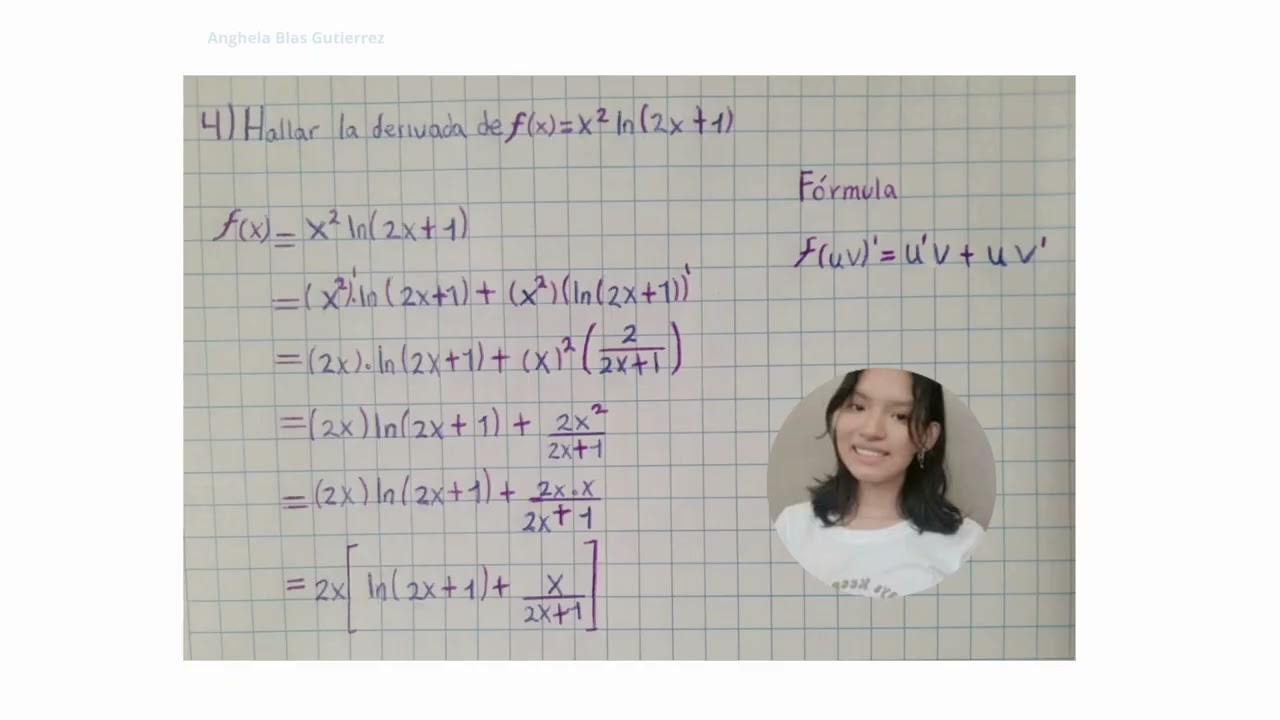 Anghela Blas Gutierrez
4) Hallar la derivada de f(x)=x² ln(2x+1)
Fórmula
f(uv)'= u'v + u v'
f(x) = x² ln(2x+1)
= (x²)'.ln(2x+1) + (x²)(ln(2x+1))'
= (2x).ln(2x+1) + (x)² (2/(2x+1))
= (2x)ln(2x+1) + 2x²/(2x+1)
= (2x)ln(2x+1) + 2x.x/(2x+1)
= 2x[ln(2x+1) + x/(2x+1)]